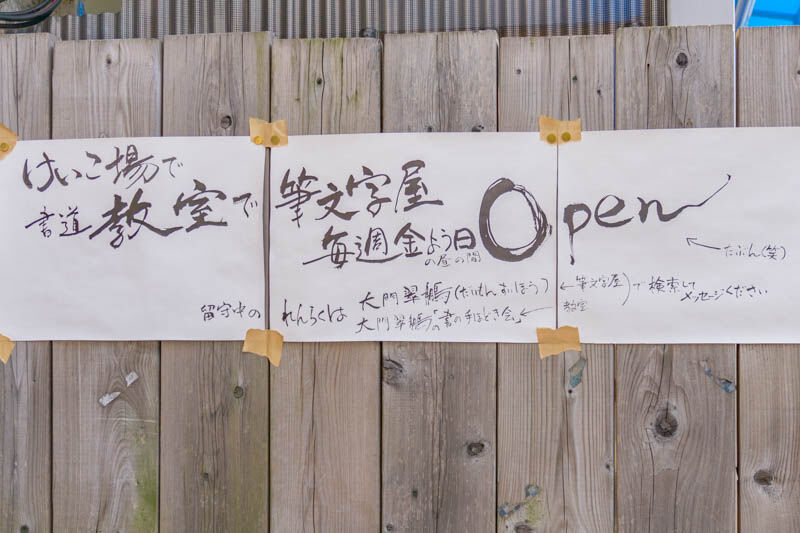 けいこ場で
書道教室で
筆文字屋
毎週金よう日
の昼の間
Open
←たぶん(笑)
留守中の れんらくは 大門翠鵬(だいもんすいほう) ←筆文字屋
大門翠鵬の「書の手ほどき会」←教室
で検索して
メッセージください